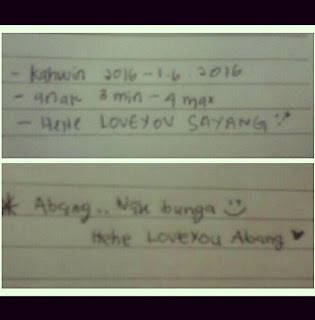 - Kahwin 2016 - 1.6.2016
- anak 3 min - 4 max
- HeHe LOVEYOU SAYANG :)
* Abang.. Nak bunga :)
Hehe LoveYou Abang ♥